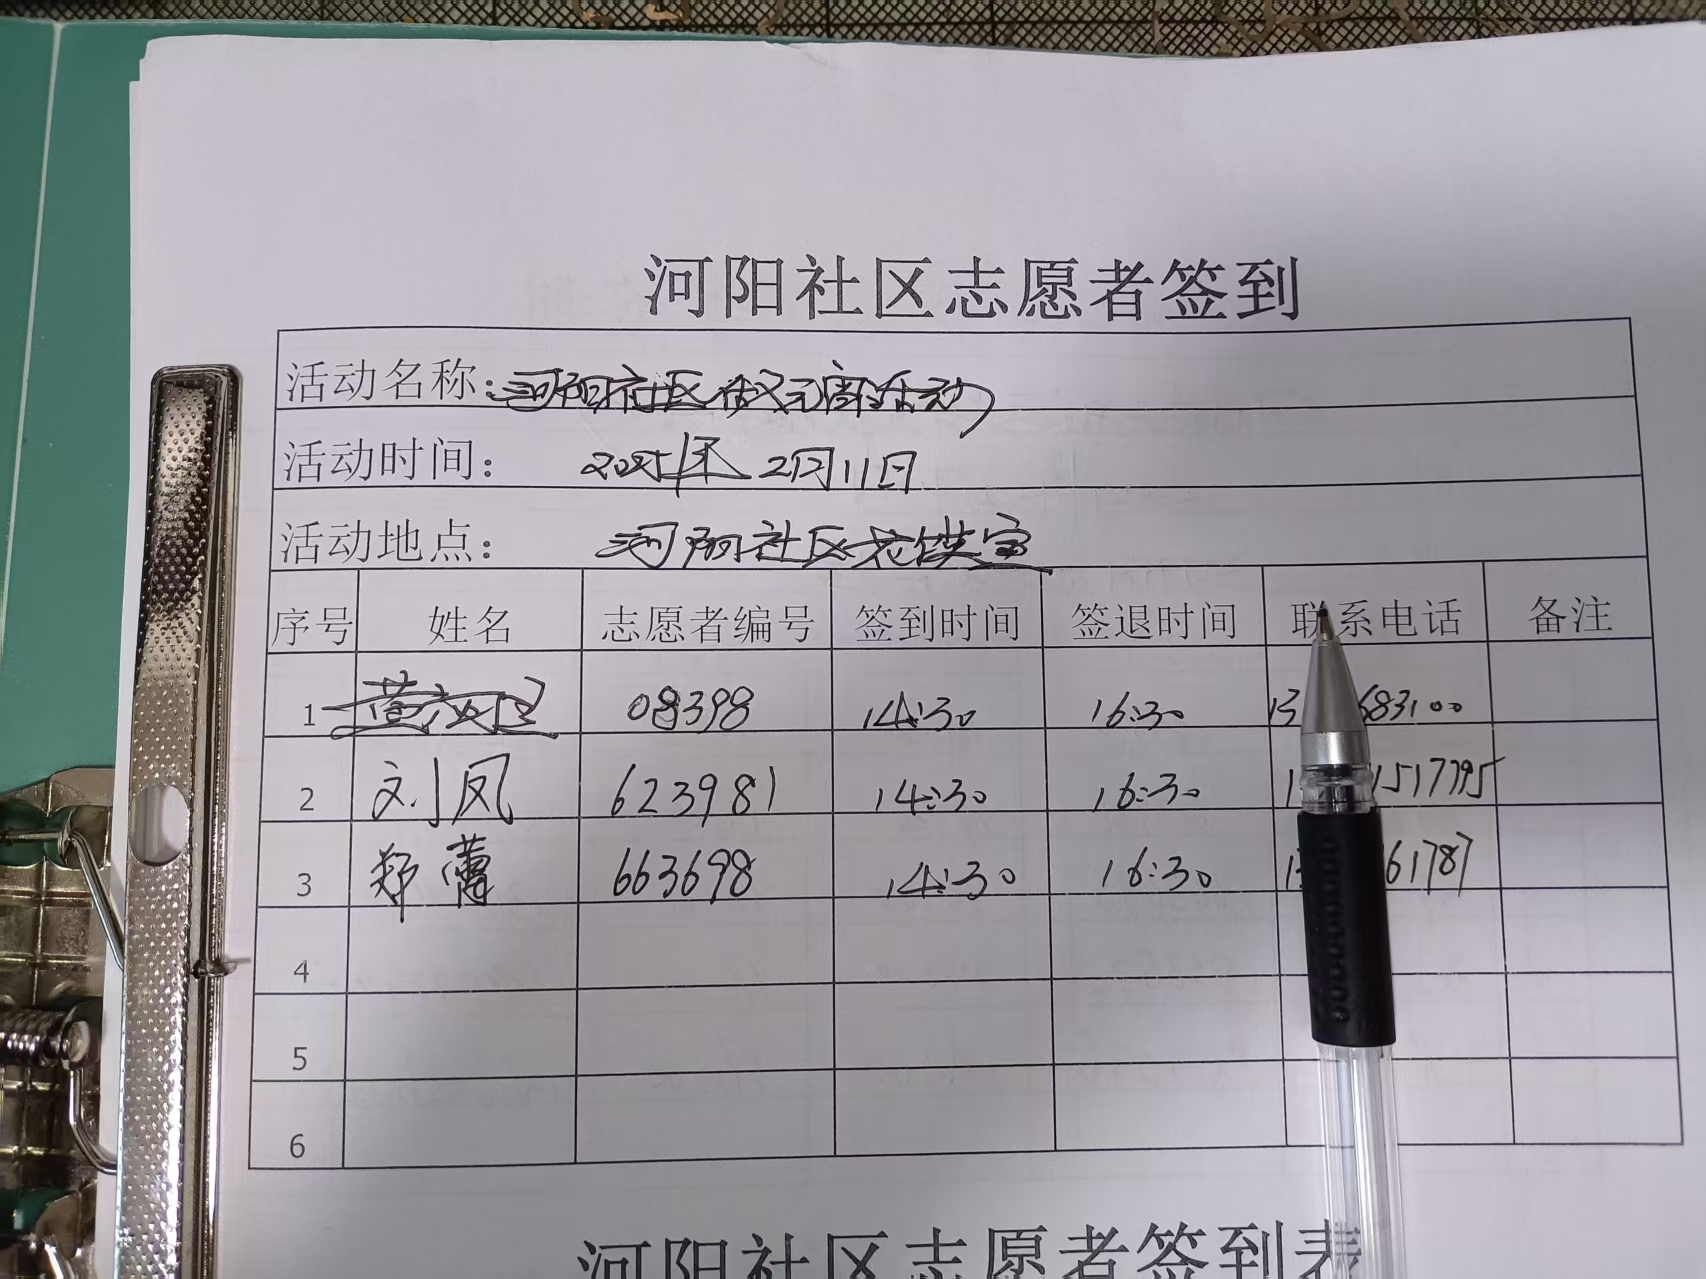 河阳社区志愿者签到
活动名称：河阳社区 元宵活动
活动时间： 2025年2月11日
活动地点： 河阳社区
序号 姓名 志愿者编号 签到时间 签退时间 联系电话 备注
1 08398 14:30 16:30 13 683100
2 刘凤 623981 14:30 16:30 1 1517795
3 郑蕾 663698 14:30 16:30 13 61787
4
5
6
河阳社区志愿者签到表